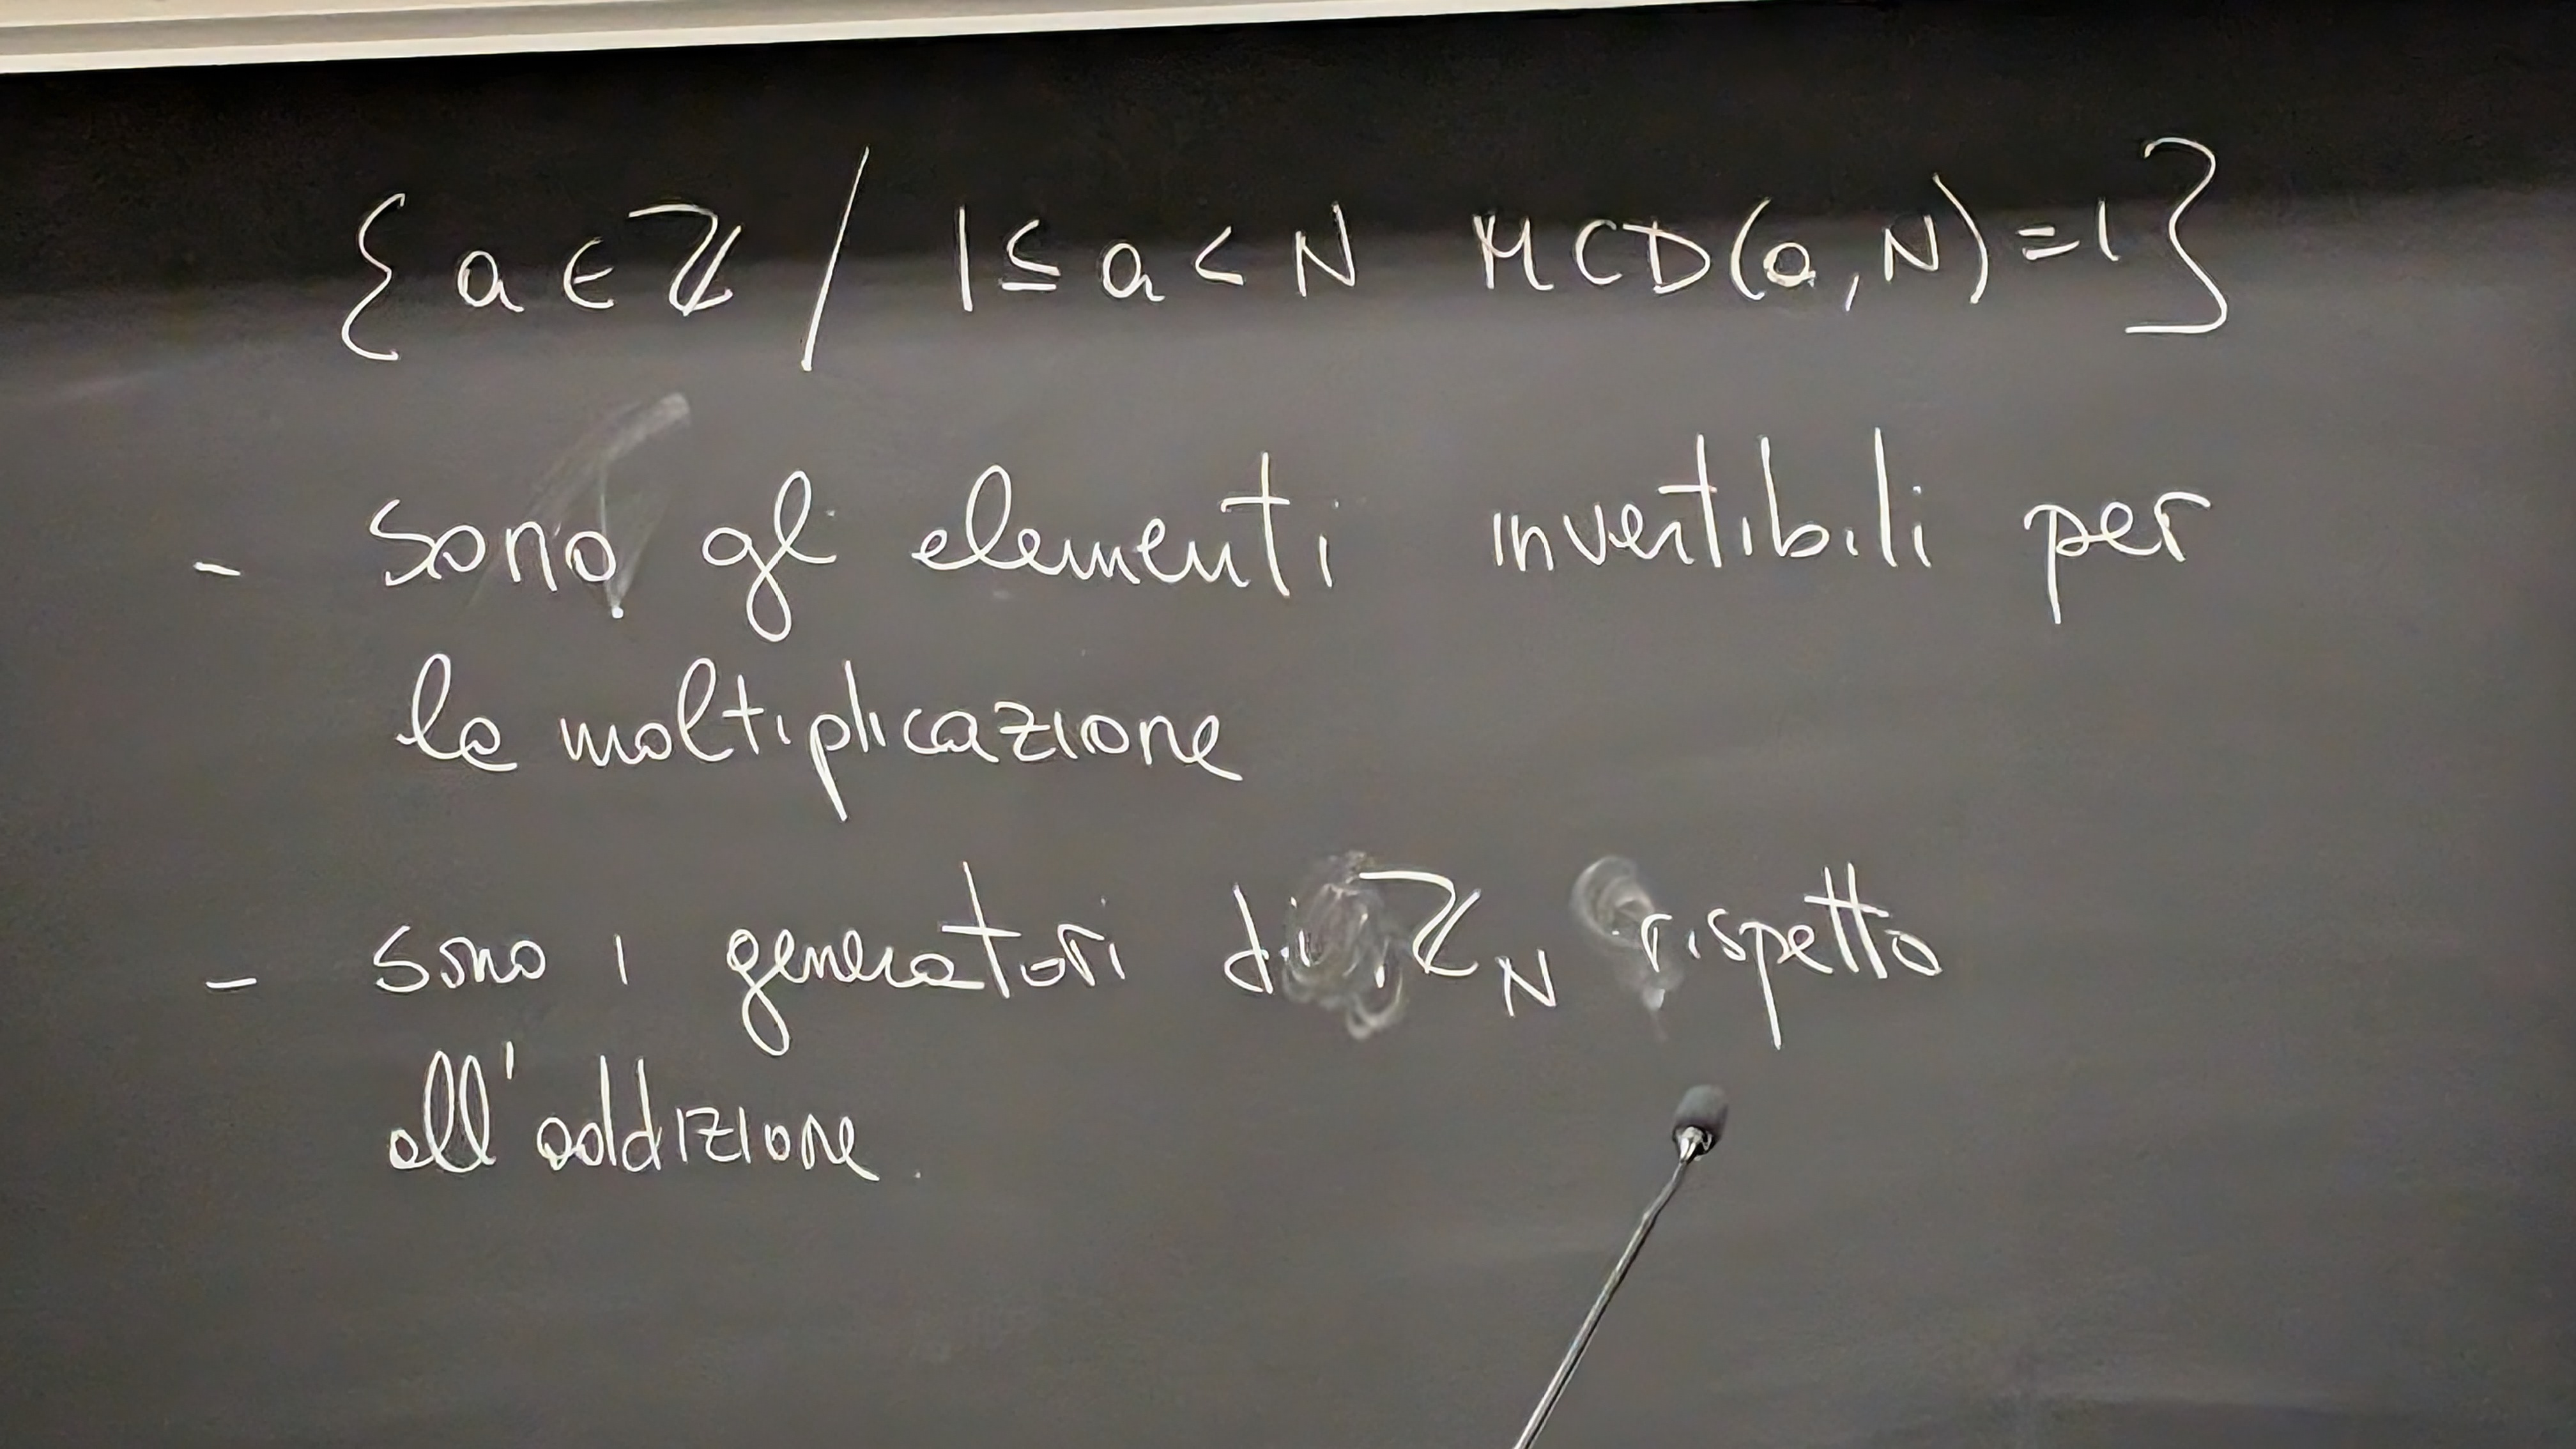 {a ∈ ℤ / 1 ≤ a < N MCD(a, N) = 1}
- sono gli elementi invertibili per
la moltiplicazione
- sono i generatori di ℤ_N rispetto
all'addizione.